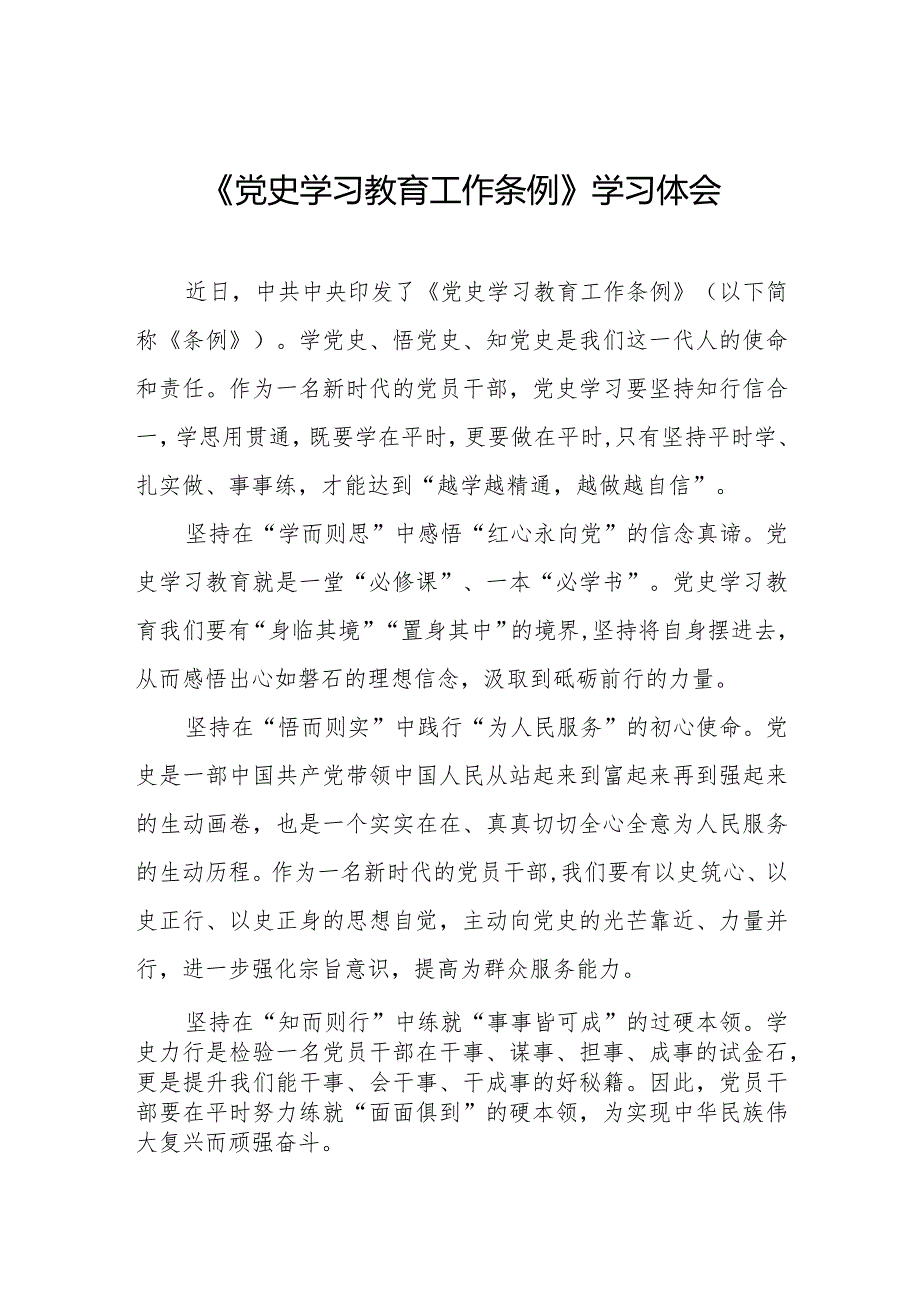 《党史学习教育工作条例》学习体会
近日，中共中央印发了《党史学习教育工作条例》（以下简
称《条例》）。学党史、悟党史、知党史是我们这一代人的使命
和责任。作为一名新时代的党员干部，党史学习要坚持知行信合
一，学思用贯通，既要学在平时，更要做在平时,只有坚持平时学、
扎实做、事事练，才能达到“越学越精通，越做越自信”。
坚持在“学而则思”中感悟“红心永向党”的信念真谛。党
史学习教育就是一堂“必修课”、一本“必学书”。党史学习教
育我们要有“身临其境”“置身其中”的境界,坚持将自身摆进去，
从而感悟出心如磐石的理想信念，汲取到砥砺前行的力量。
坚持在“悟而则实”中践行“为人民服务”的初心使命。党
史是一部中国共产党带领中国人民从站起来到富起来再到强起来
的生动画卷，也是一个实实在在、真真切切全心全意为人民服务
的生动历程。作为一名新时代的党员干部,我们要有以史筑心、以
史正行、以史正身的思想自觉，主动向党史的光芒靠近、力量并
行，进一步强化宗旨意识，提高为群众服务能力。
坚持在“知而则行”中练就“事事皆可成”的过硬本领。学
史力行是检验一名党员干部在干事、谋事、担事、成事的试金石，
更是提升我们能干事、会干事、干成事的好秘籍。因此，党员干
部要在平时努力练就“面面俱到”的硬本领，为实现中华民族伟
大复兴而顽强奋斗。